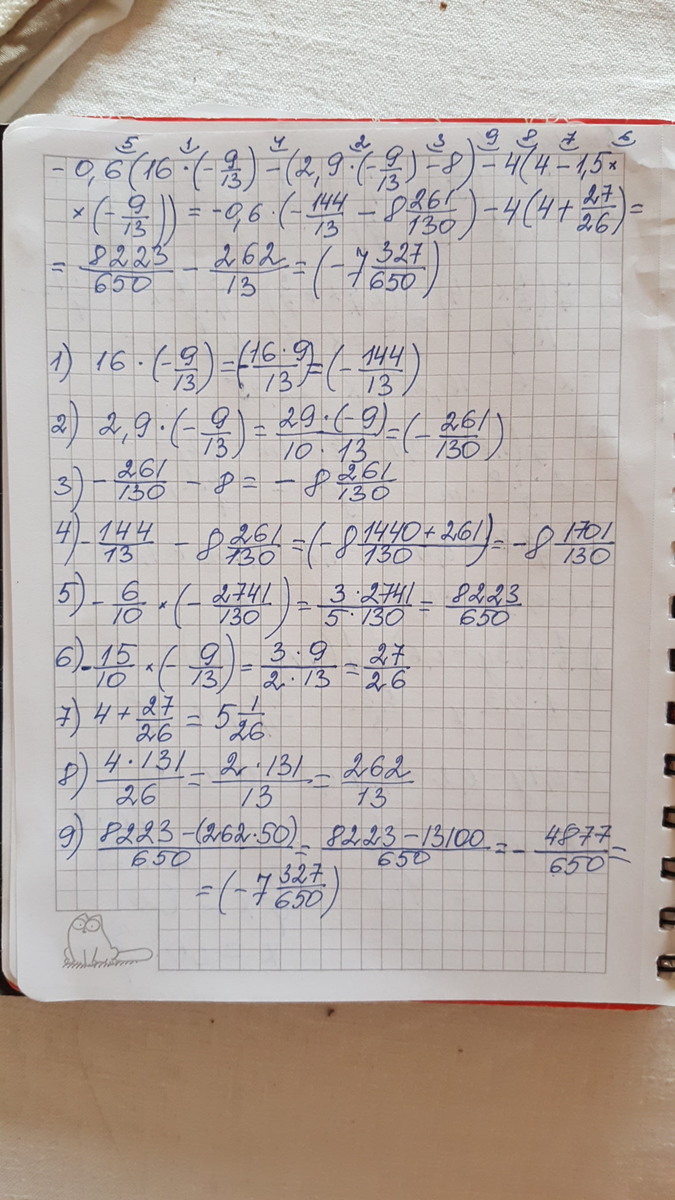 5 1 4 2 3 9 8 7 6
- 0,6(16 · (-9/13) - (2,9 · (-9/13) - 8) - 4(4 - 1,5 ×
× (-9/13)) = -0,6 · (-144/13 - 8 261/130) - 4(4 + 27/26) =
= 8223/650 - 262/13 = (-7 327/650)
1) 16 · (-9/13) = (-16·9/13) = (-144/13)
2) 2,9 · (-9/13) = 29·(-9)/10·13 = (-261/130)
3) -261/130 - 8 = - 8 261/130
4) -144/13 - 8 261/130 = (-8 1440+261/130) = -8 1701/130
5) -6/10 × (-2741/130) = 3·2741/5·130 = 8223/650
6) -15/10 × (-9/13) = 3·9/2·13 = 27/26
7) 4 + 27/26 = 5 1/26
8) 4·131/26 = 2·131/13 = 262/13
9) 8223-(262·50)/650 = 8223-13100/650 = -4877/650 =
= (-7 327/650)